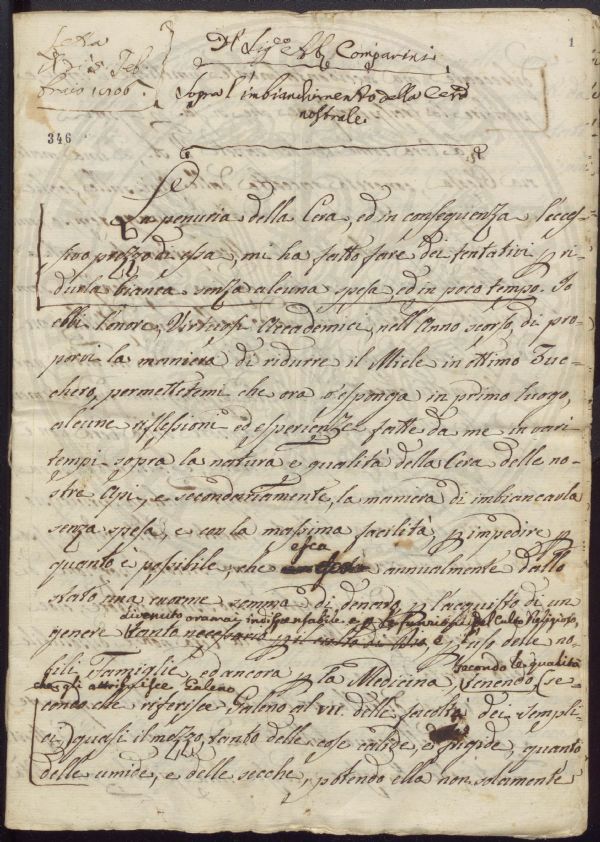 Letta
Febbraio 1806
1
Del Sig.e Ab. Comparini
Sopra l'imbianchimento della Cera
nostrale
346
Se
la penuria della Cera, ed in conseguenza l'ecces
sivo prezzo di essa, mi ha fatto fare dei tentativi p ri
durla bianca senza alcuna spesa, ed in poco tempo. Io
ebbi l'onore, Virtuosi Accademici, nell'Anno scorso, di pro
porvi la maniera di ridurre il Miele in ottimo Zuc
chero, permettetemi che ora v'esponga in primo luogo,
alcune riflessioni ed esperienze fatte da me in vari
tempi sopra la natura e qualità della Cera delle no
stre Api, e secondariamente, la maniera di imbiancarla
senza spesa, e con la massima facilità, p impedire p
quanto è possibile, che esca annualmente dallo
stato una enorme somma di denaro p l'acquisto di un
divenuto oramai indispensabile e p le funzioni del Culto Religioso,
genere tanto necessario e p l'uso delle no
bili Famiglie, ed ancora p la Medicina, secondo le qualità
che gli attribuisce Galeno venendo (se
condo che riferisce Galeno al VII. delle facoltà dei sempli
ci) quasi il mezzo, tanto delle cose calide, e frigide, quanto
delle umide, e delle secche, potendo ella non solamente